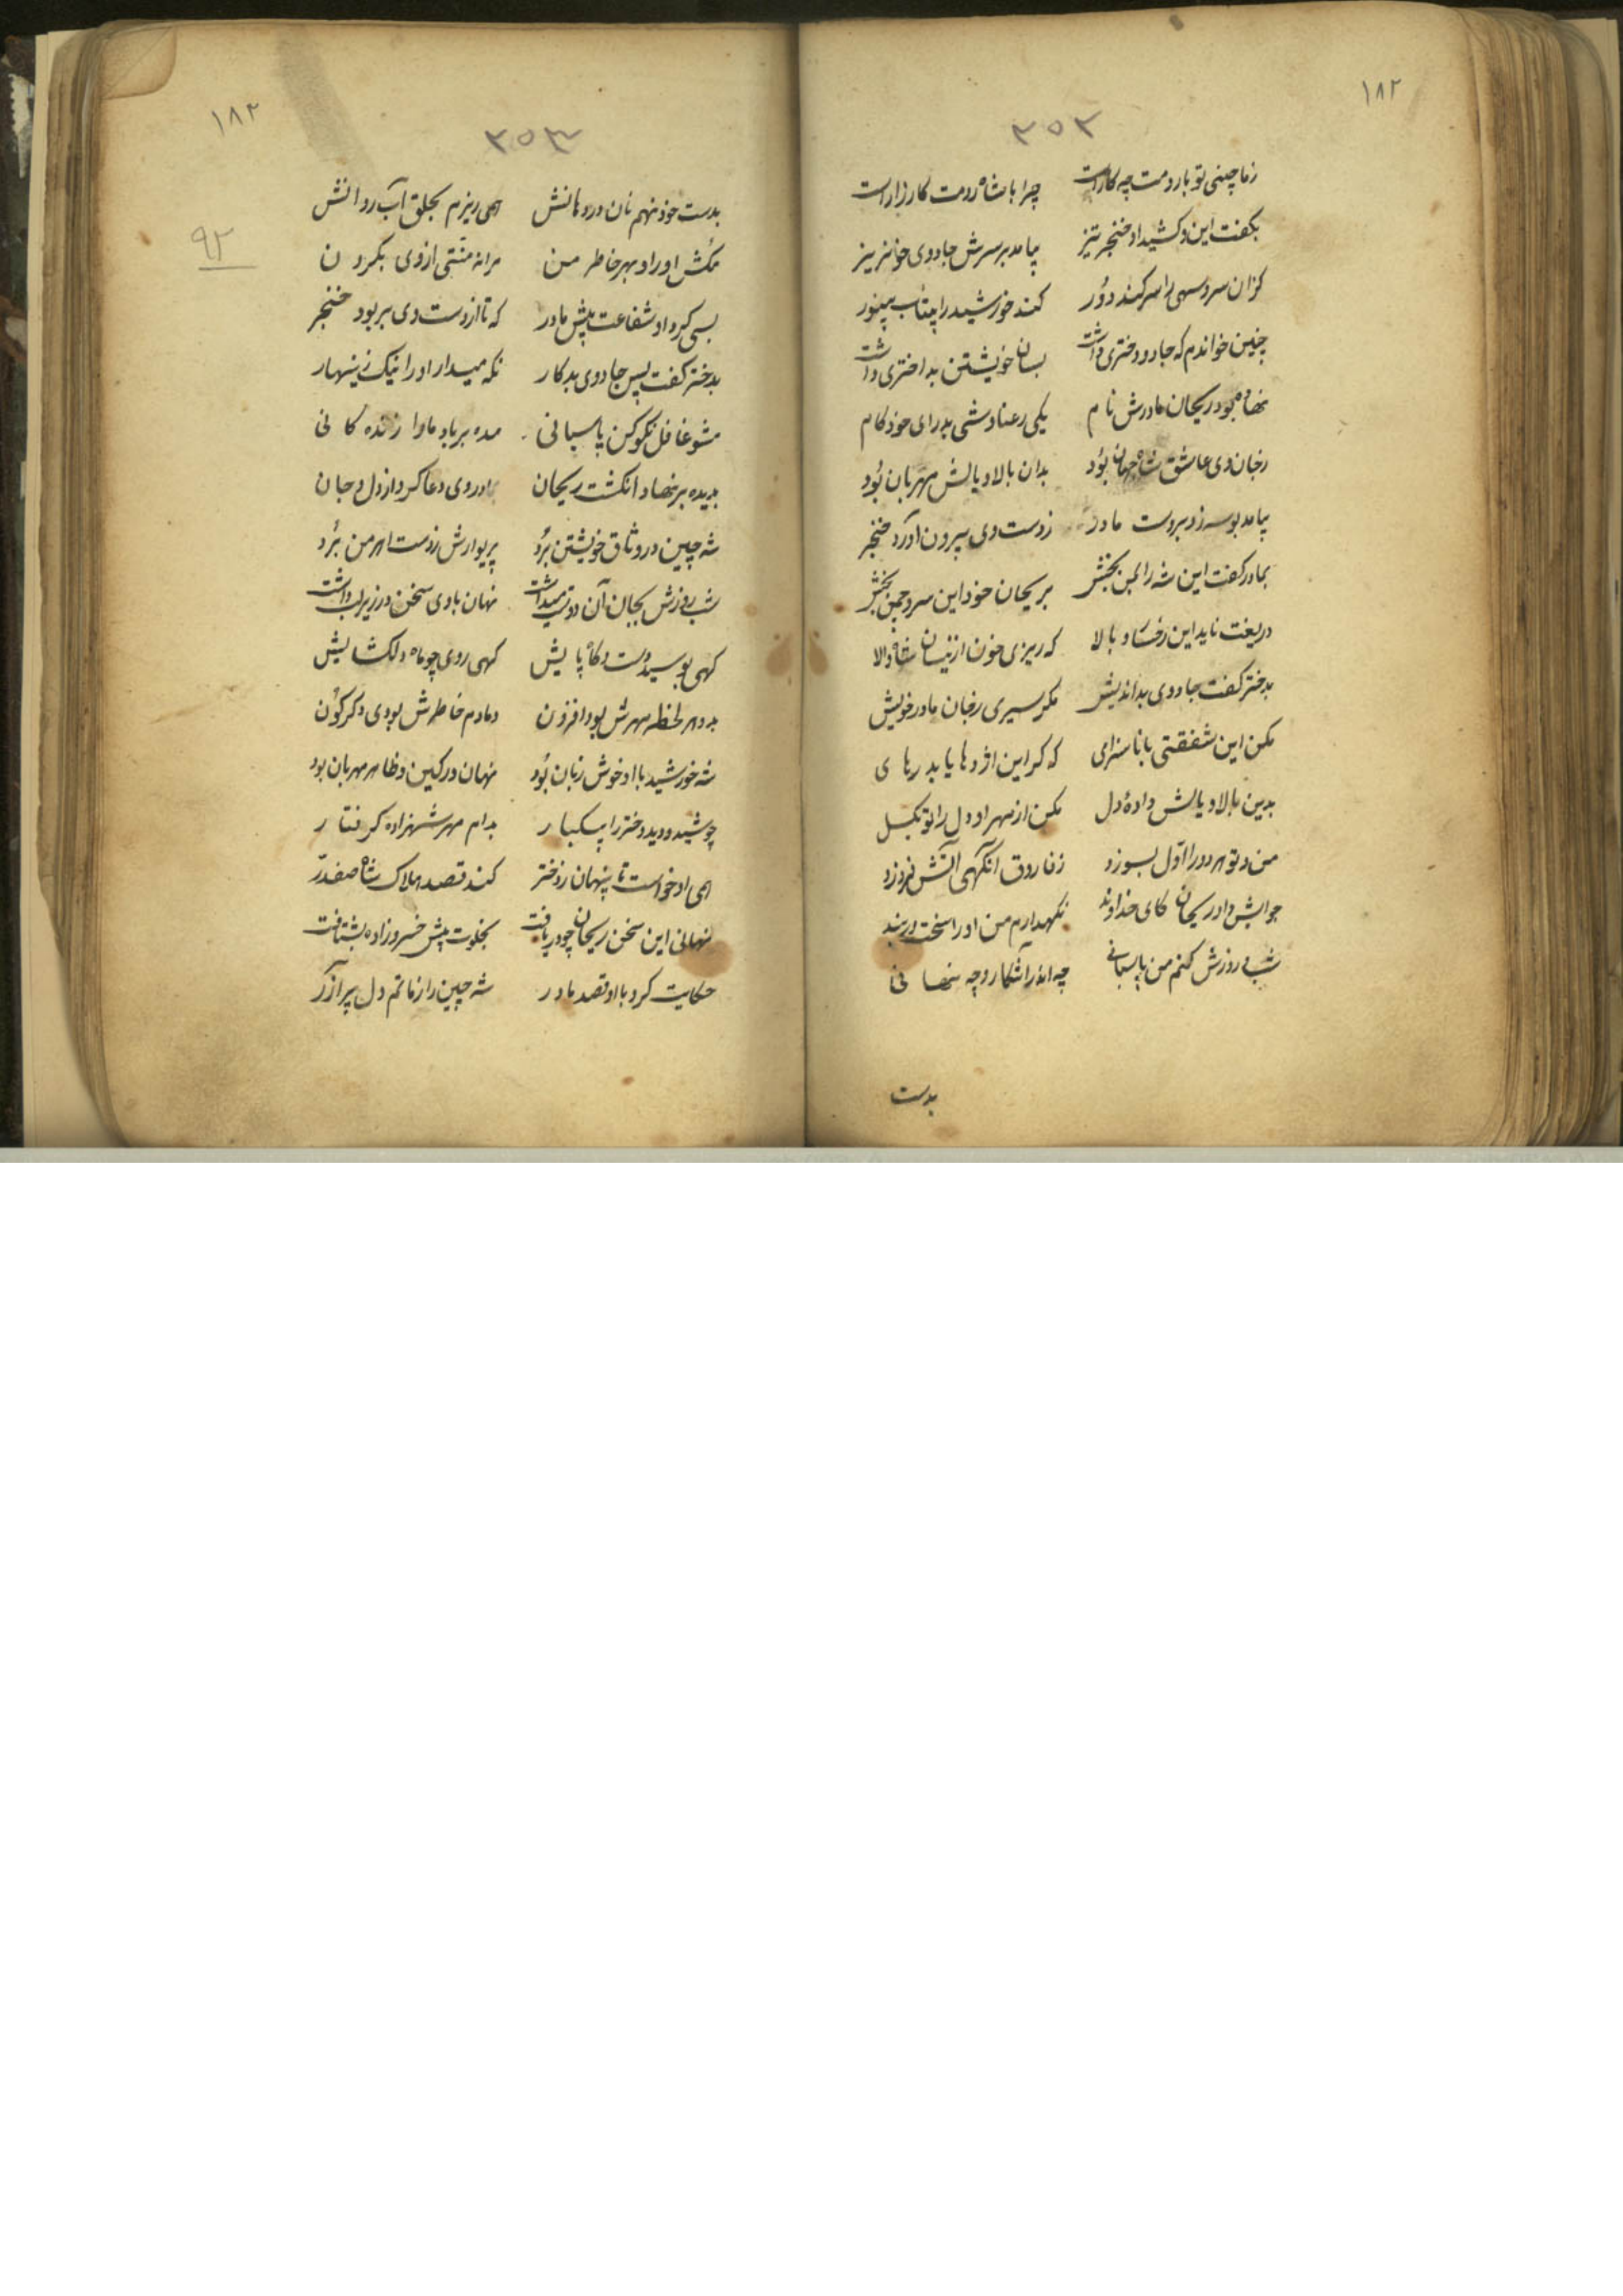 ۱۸۲
۳۵۲
زما چینی تو با رومت چه کارست چرا با شاه رومت کارزارست
بگفت این و کشید او خنجر تیز بیامد بر سرش جادوی خونریز
کزان سرو سهی را سر کند دور کند خورشید را بیتاب و بینور
چنین خواندم که جادو دختری داشت بسان خویشتن بد اختری داشت
نهاده بود ریحان مادرش نام یکی رعنا وشی بد رای خودکام
ز جان وی عاشق شاه جهان بود بدان بالا و یالش مهربان بود
بیامد بوسه زد بر دست مادر ز دست وی بیرون آورد خنجر
بمادر گفت این شه را بمن بخش بریحان خود این سرو چمن بخش
دریغت ناید این رخسار و بالا که ریزی خون ازینسان شاه والا
بدختر گفت جادوی بداندیش مگر سیری ز جان مادر خویش
مکن این شفقتی با ناسزای که گر این اژدها یابد رهای
بدین بالا و یالش داده دل مکن از مهر او دل را تو بگسل
من و تو هر دو را اول بسوزد زفاروق آنگهی آتش فروزد
جوابش داد ریحان کای خداوند نگهدارم من او را سخت در بند
شب و روزش کنم من پاسبانی چه اندر آشکار و چه نهانی
بدست
۱۸۲
۳۵۳
۹۲
بدست خود نهم نان در دهانش همی ریزم بحلق آب روانش
مکش او را و بهر خاطر من مرا نه منتی از وی بگردن
بسی کرد او شفاعت پیش مادر که تا از دست وی بربود خنجر
بدختر گفت پس جادوی بدکار نگه میدار او را نیک زینهار
مشو غافل نکو کن پاسبانی مده بر باد ما را زنده کانی
بدیده بر نهاد انگشت ریحان بمادر وی دعا کرد از دل و جان
شه چین در وثاق خویشتن برد پریوارش ز دست اهرمن برد
شب روزش بجان آن دوست میداشت نهان با وی سخن در زیر لب داشت
گهی بوسید دست و گاه پایش گهی روی چو ماه دلگشایش
بدو هر لحظه مهرش بود افزون دمادم خاطرش بودی دگرگون
شه خورشید با او خوش زبان بود نهان در کین و ظاهر مهربان بود
چو شید و دید دختر را بیکبار بدام مهر شهزاده گرفتار
همی او خواست تا پنهان ز دختر کند قصد هلاک شاه صفدر
نهانی این سخن ریحان چو دریافت بخلوت پیش خسروزاده بشتافت
حکایت کرد با او قصد مادر شه چین را ز ماتم دل پر آزر